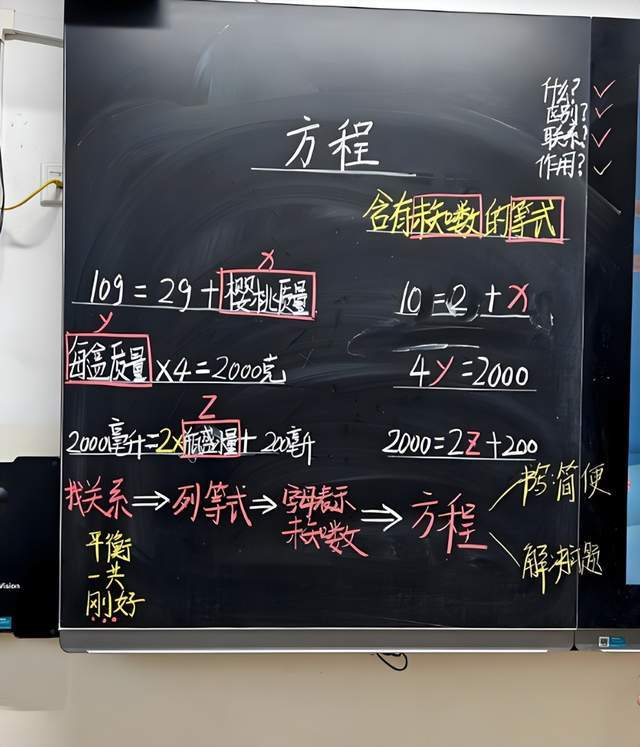 什么?
区别?
联系?
作用?
方程
含有未知数的等式
x
10g=2g+樱桃质量
10=2+x
y
每盒质量×4=2000克
4y=2000
z
2000毫升=2×瓶盛量+200毫升
2000=2z+200
找关系⇒列等式⇒字母表示未知数⇒方程
书写简便
解决问题
平衡
一共
刚好
Vision